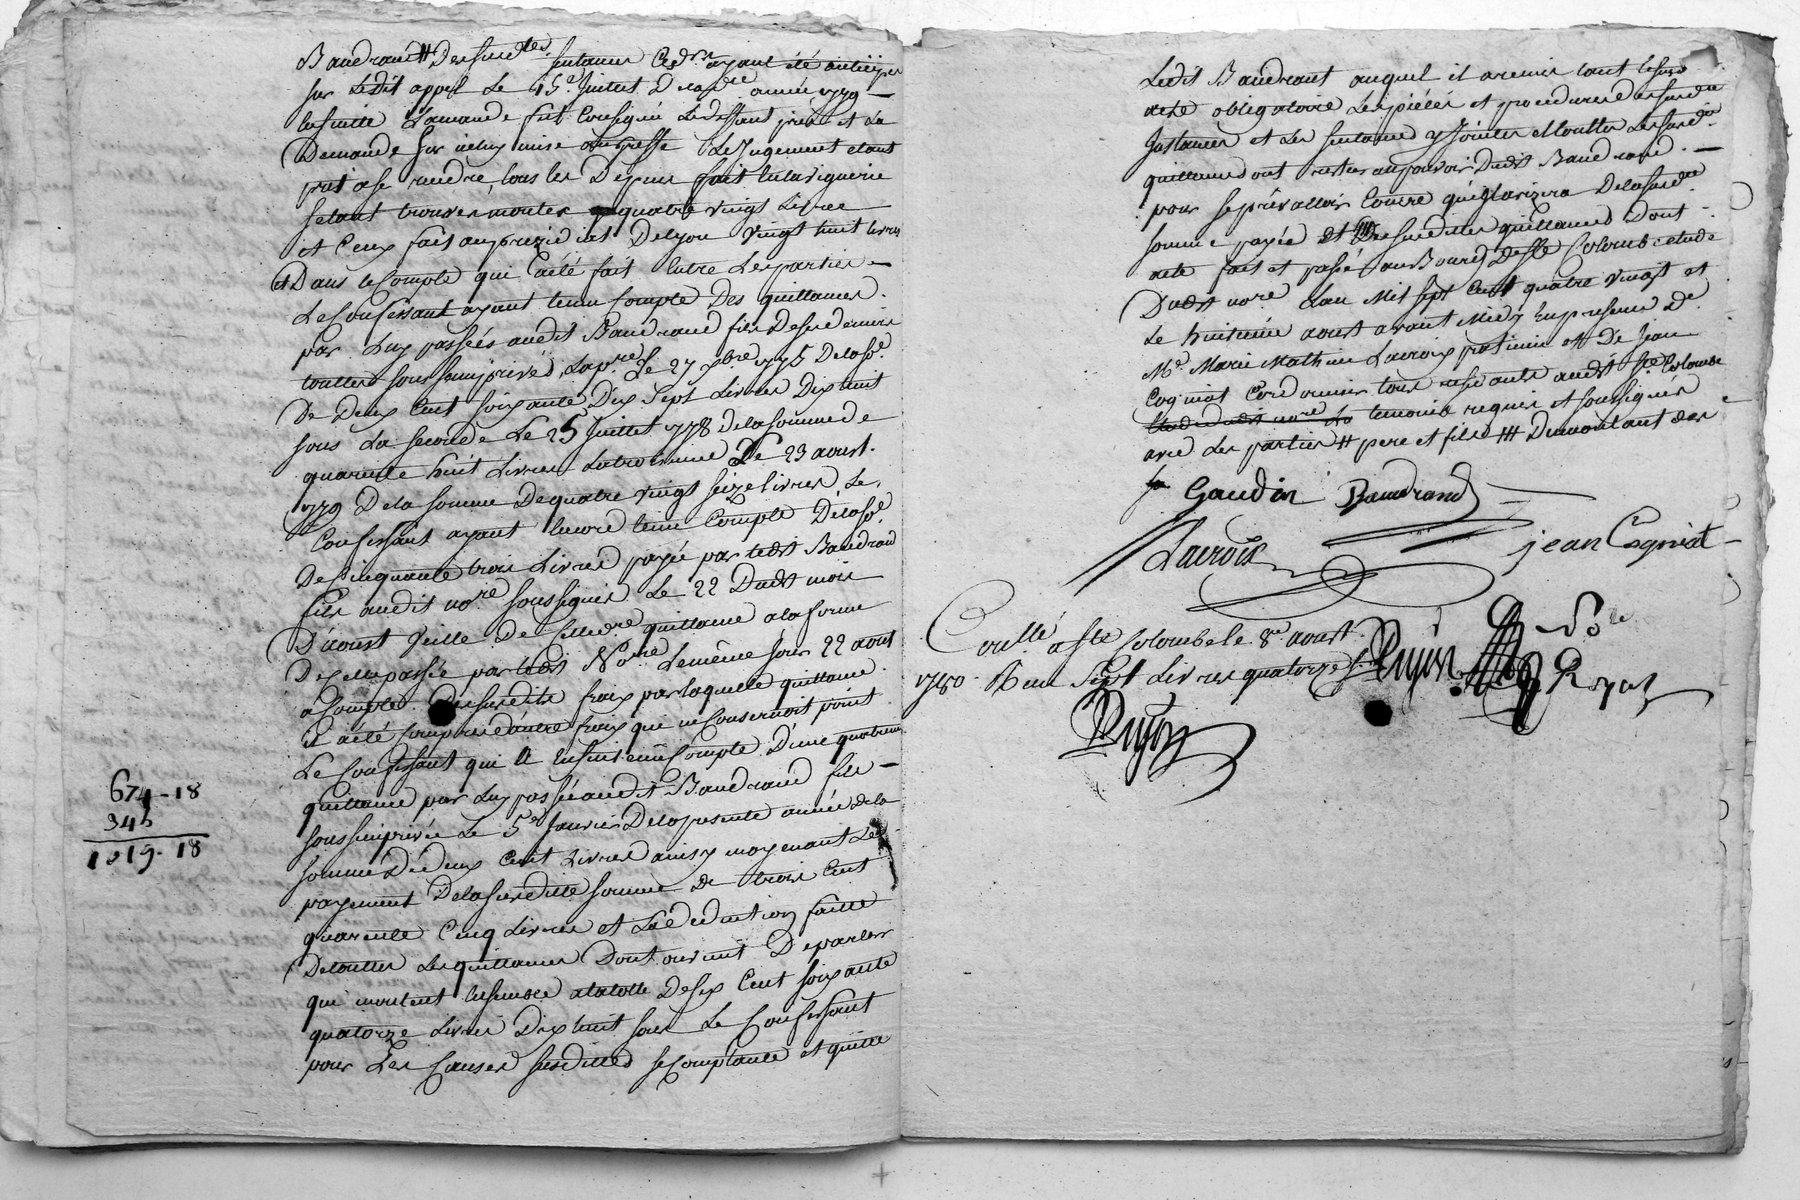 Baudrand # Desusd.tes sentances Ced.er ayant été anticiper
sur Ledit appel Le 15.e Juillet D la p.nte année 1779 —
Ensuitte Lamande fut Consignée Le deffaut prix et La
Demande Sur icelux mise au greffe Le Jugement etant
pret ase rendre, tous les Depens fait En la Viguerie
setant trouves monter a quatre vingt Livres
et Ceux fait au presidial De Lyon Vingt huit livres
et Dans le Compte qui a été fait Entre Les parties —
Le Confessant ayant tenu Compte Des quittances
par Luy passées audit Baudrand fils Desusd
touttes sous seing privé, La p.re Le 27 9.bre 1775 De la So.e
De Deux Cent soixante Dix Sept Livres Dix huit
sous La seconde Le 25 Juillet 1778 De la somme de
quarente huit Livres La troisieme Le 23 aoust
1779 De la somme De quatre vingt seize livres Le
Confessant ayant Encore tenu Compte De la So.e
De Cinquante trois Livres payée par ledit Baudrand
fils audit no.re soussigné Le 22 Dudit mois
D'aoust Veille De quittance a la forme
De celle passée par ledit No.re Le même jour 22 aout
a Compte Des susdits fraix par laquelle quittance
il a été Compris d'autre fraix qui ne Consernoit point
Le Confessant qui a Ensuitte Compte D'une quatrieme
quittance par Luy passée audit Baudrand fils —
sous seing privé Le 5.e Janvier De la presente année de la
somme De deux Cent Livres ainsy moyenant Le
payement De la susditte somme De trois Cent
quarente Cinq Livres et La deduction faitte
De touttes Les quittances Dont on vient De parler
qui montent Ensemble a la totte De six Cent soixante
quatorze Livres Dix huit sous Le Confessant
pour Les Causes susdittes se Comptante et quitte
674-18
345
1019-18
Ledit Baudrand auquel il a remis tant le susd
acte obligatoire Les pièces et procedures des susd.tes
Instances et Les sentance y Jointes et touttes Les susd.tes
quittances dont rester au pouvoir Dudit Baudrand —
pour se prévalloir Contre qui Il avizera De la susd.te
somme payée et ### Des susdittes quittances Dont
acte fait et passé au Bourg De S.te Colombe etude
Dudit no.re L'an Mil sept Cent quatre vingt et
Le huitieme aoust avant Midy En presence De
M.e Marie Mathieu Lacroix praticien et De Jean
Cogniat Cordonnier tous residants audit S.te Colombe
Etude dudit no.re temoins requis et soussignés
avec Les parties # pere et fils ### Du montant des
Gaudin Baudrand
Lacroix jean Cogniat
Con.lé a Ste Colombe le 8.e aoust
1780 R sept Livres quatorze s. Dujon
Dujon